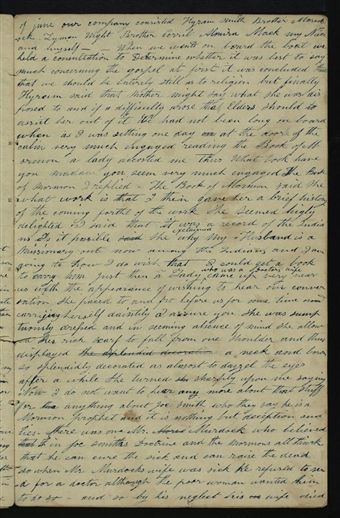 of june our company consisted Hyram Smith Brother
sick Lyman Wight Brother Corril Almira Mack my Niece
and myself — When we went on board the boat we
held a consultation to Determine whether it was best to say
much concerning the gospel at first it was concluded that
that we should be entirely still as to religion but finally
Hyram said that Mother might say what she was dis
posed to and if a difficulty arose that Elders should
assist her out of it We had not been long on board
when as I was sitting one day at the door of the
cabin very much engaged reading the Book of M
ormon a lady accosted me thus What book have
you madam you seem very much engaged The Book
of Mormon I replied — The Book of Mormon said she
what work is that I then gave her a brief history
of the coming forth of the work she seemed highly
delighted I said that it was a record of the India
ns Is it possible exclaimed she why My Husband is a
Missionary out now among the Indians and I am
going to how I do wish that I could get a book
to carry him Just then a Lady who was a Doctors wife came up very near
us with the appearance of wishing to hear our conver
sation she paced to and fro before us for some time
carrying herself daintily I assure you she was sump
tuously dressed and in seeming absence of mind she allow
ed a rich scarf to fall from one shoulder and thus
displayed the splendid decoration a neck and bosom
so splendidly decorated as almost to dazzle the eyes
after a while she turned sharply upon me saying
Now I do not want to hear any more about that stuff
or anything about Joe smith who they say he is a
Mormon Prophet and it is nothing but deception and
lies there was one Mr Murdock who believed
in joe smiths Doctrine and the Mormons all think
that he can cure the sick and can raise the dead
so when Mr Murdocks wife was sick he refused to sen
d for a doctor although the poor woman wanted them
to do so — and so by his neglect his wife died